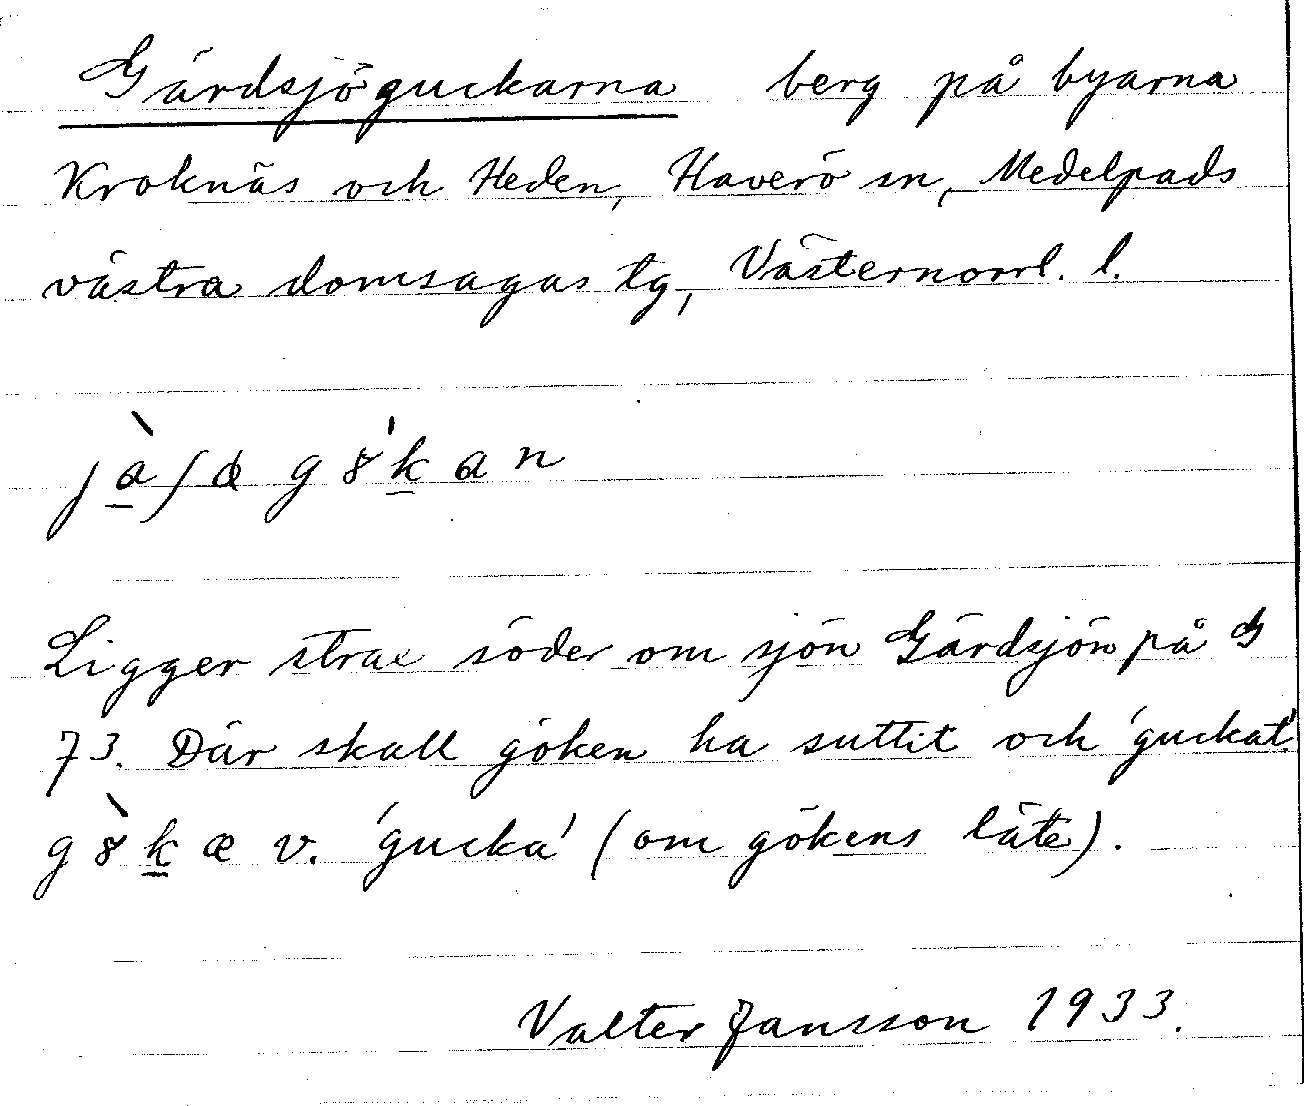 Gärdsjöguckarna berg på byarna
Kroknäs och Heden, Haverö sn, Medelpads
västra domsagas tg, Västernorrl. l.
Ligger strax söder om sjön Gärdsjön på G
73. Där skall göken ha suttit och 'guckat'.
v. 'gucka' (om gökens läte).
Valter Jansson 1933.